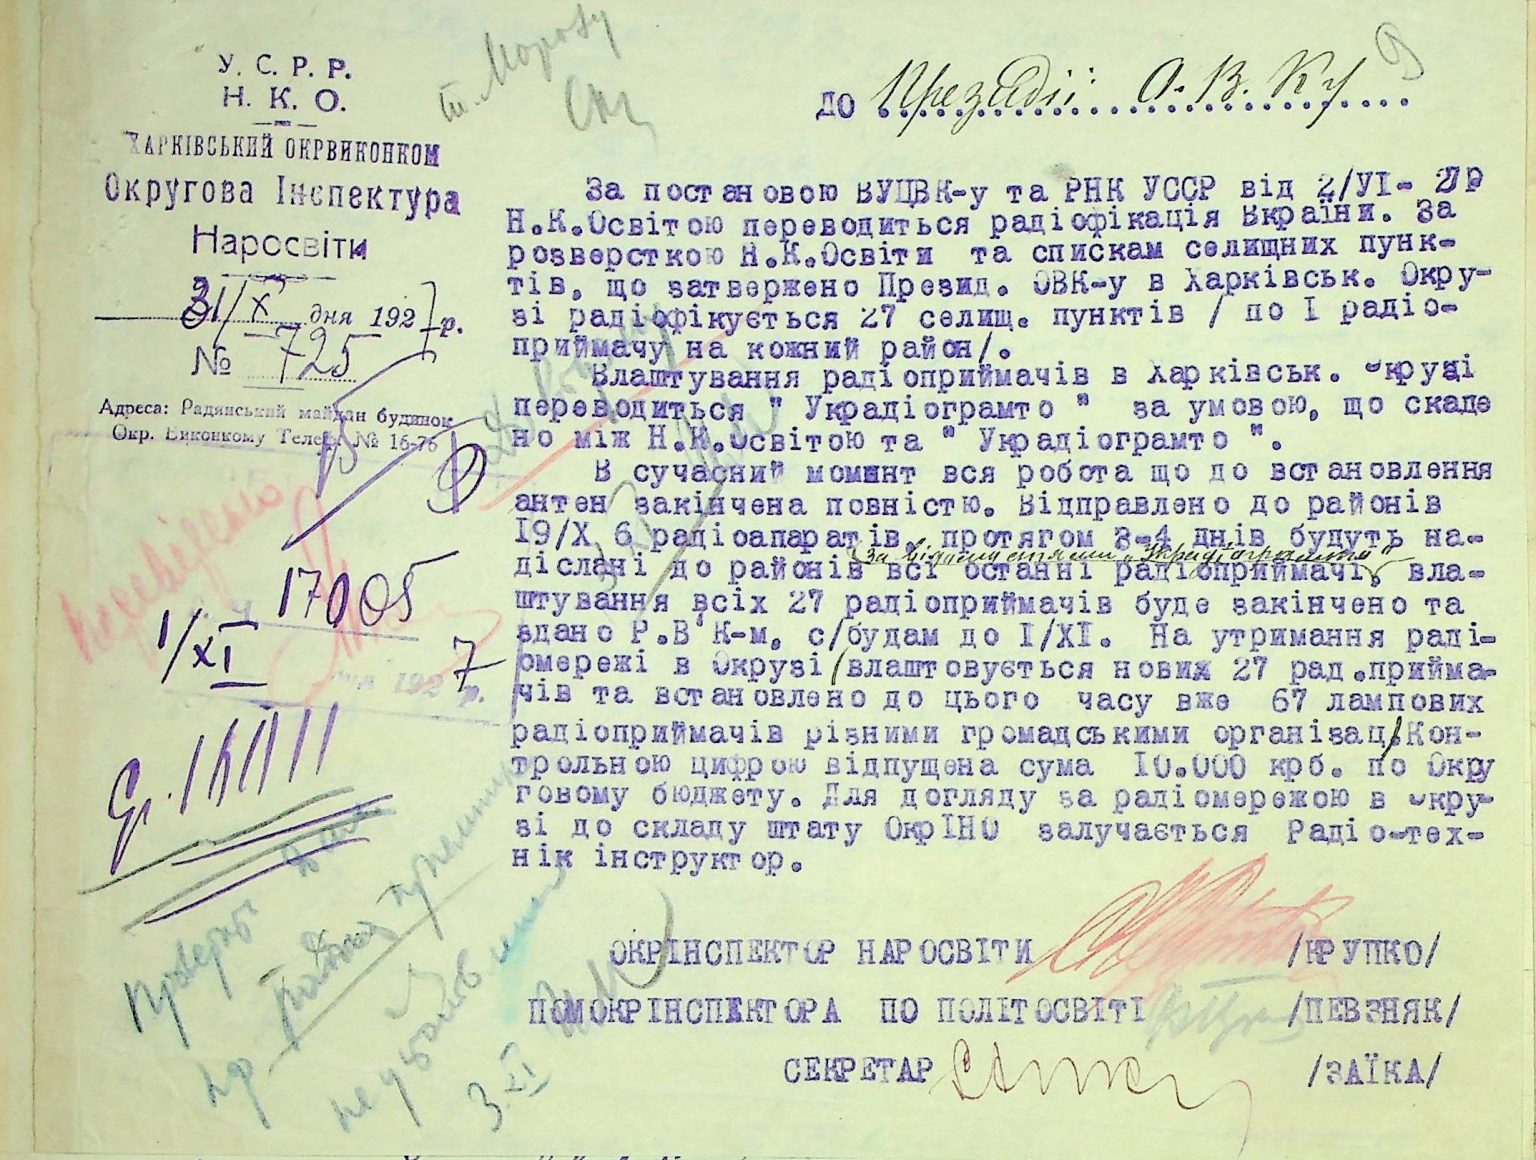 У. С. Р. Р.
Н. К. О.
ХАРКІВСЬКИЙ ОКРВИКОНКОМ
Округова Інспектура
Наросвіти
31/X дня 1927 р.
№ 725
Адреса: Радянський майдан будинок
Окр. Виконкому Телеф. № 16-76
т. Морозу
до Президії О.В.К-у
За постановою ВУЦВК-у та РНК УССР від 2/УІ- 27р
Н.К.Освітою переводиться радіофікація Вкраїни. За
розверсткою Н.К.Освіти та спискам селищних пунк-
тів, що затвержено Презид. ОВК-у в Харківськ. Окру-
зі радіофікується 27 селищ. пунктів / по І радіо-
приймачу на кожний район/.
Влаштування радіоприймачів в Харківськ. Окрузі
переводиться " Украдіограмто " за умовою, що скаде
но між Н.К.Освітою та " Украдіограмто ".
В сучасний момент вся робота що до встановлення
антен закінчена повністю. Відправлено до районів
І9/X 6 радіоапаратів, протягом 3-4 днів будуть на-
діслані до районів всі останні радіоприймачі, вла-
штування всіх 27 радіоприймачів буде закінчено та
здано Р.В'К-м, с/будам до І/XІ. На утримання раді-
омережі в Окрузі /влаштовується нових 27 рад.прийма-
чів та встановлено до цього часу вже 67 лампових
радіоприймачів різними громадськими організац/.Кон-
трольною цифрою відпущена сума І0.000 крб. по Окру
говому бюджету. Для догляду за радіомережою в Окру-
зі до складу штату ОкрІНО залучається Радіо-тех-
нік інструктор.
17005
1/XI 7 р.
192
ОКРІНСПЕКТОР НАРОСВІТИ /КРУПКО/
ПОМОКРІНСПЕКТОРА ПО ПОЛІТОСВІТІ /ПЕВЗНЯК/
СЕКРЕТАР /ЗАЇКА/
3.XI